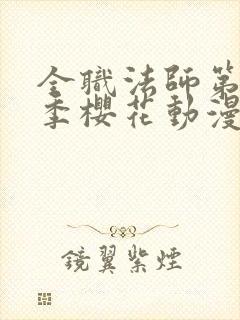 全職法師第
季櫻花動漫
鏡翼紫煙